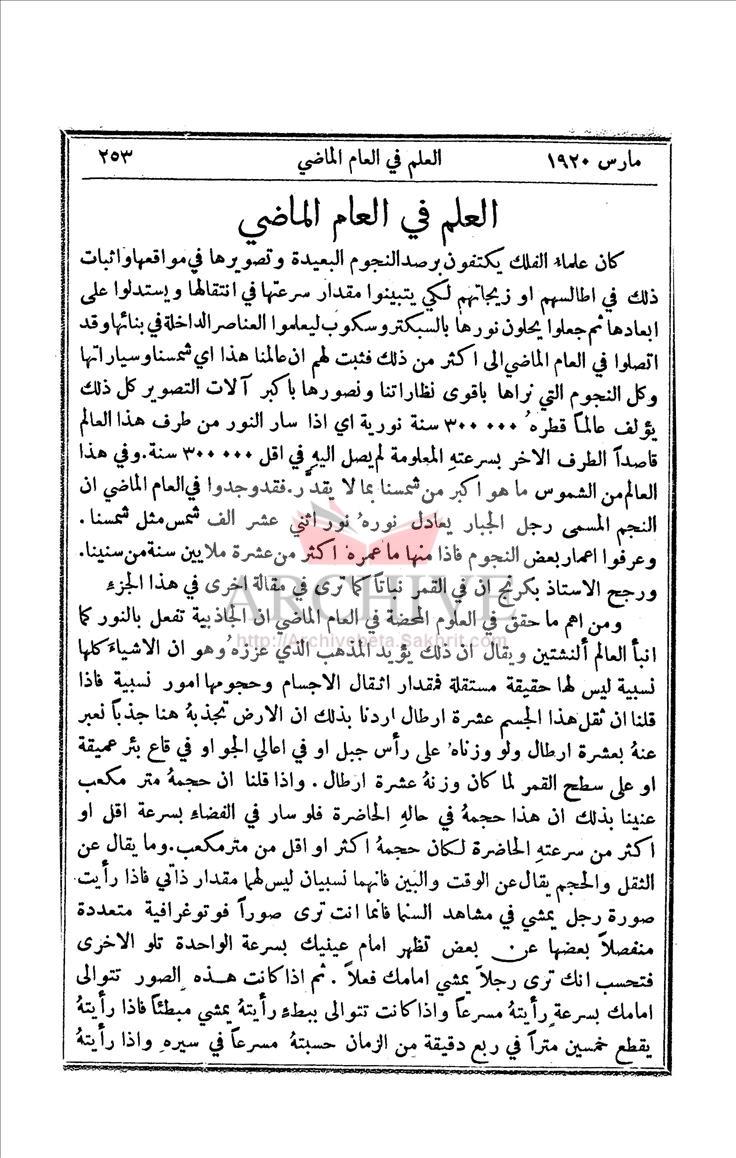 مارس ١٩٢٠ العلم في العام الماضي ٢٥٣
العلم في العام الماضي
كان علماء الفلك يكتفون برصد النجوم البعيدة وتصويرها في مواقعها واثبات
ذلك في اطالسهم او زيجاتهم لكي يتبينوا مقدار سرعتها في انتقالها ويستدلوا على
ابعادها ثم جعلوا يحلون نورها بالسبكتروسكوب ليعلموا العناصر الداخلة في بنائها وقد
اتصلوا في العام الماضي الى اكثر من ذلك فثبت لهم ان عالمنا هذا اي شمسنا وسياراتها
وكل النجوم التي نراها باقوى نظاراتنا ونصورها باكبر آلات التصوير كل ذلك
يؤلف عالماً قطرهُ ٣٠٠ ٠٠٠ سنة نورية اي اذا سار النور من طرف هذا العالم
قاصداً الطرف الاخر بسرعتهِ المعلومة لم يصل اليهِ في اقل ٣٠٠ ٠٠٠ سنة. وفي هذا
العالم من الشموس ما هو اكبر من شمسنا بما لا يقدَّر. فقد وجدوا في العام الماضي ان
النجم المسمى رجل الجبار يعادل نورهُ نور اثني عشر الف شمس مثل شمسنا.
وعرفوا اعمار بعض النجوم فاذا منها ما عمرهُ اكثر من عشرة ملايين سنة من سنينا.
ورجح الاستاذ بكرنج ان في القمر نباتاً كما ترى في مقالة اخرى في هذا الجزءِ
ومن اهم ما حقق في العلوم المحضة في العام الماضي ان الجاذبية تفعل بالنور كما
انبأ العالم ألنشتين ويقال ان ذلك يؤيد المذهب الذي عززهُ وهو ان الاشياء كلها
نسبية ليس لها حقيقة مستقلة فمقدار اثقال الاجسام وحجومها امور نسبية فاذا
قلنا ان ثقل هذا الجسم عشرة ارطال اردنا بذلك ان الارض تجذبهُ هنا جذباً نعبر
عنهُ بعشرة ارطال ولو وزناهُ على رأس جبل او في اعالي الجو او في قاع بئر عميقة
او على سطح القمر لما كان وزنهُ عشرة ارطال. واذا قلنا ان حجمهُ متر مكعب
عنينا بذلك ان هذا حجمهُ في حالهِ الحاضرة فلو سار في الفضاء بسرعة اقل او
اكثر من سرعتهِ الحاضرة لكان حجمهُ اكثر او اقل من متر مكعب. وما يقال عن
الثقل والحجم يقال عن الوقت والبين فانهما نسبيان ليس لهما مقدار ذاتي فاذا رأيت
صورة رجل يمشي في مشاهد السنما فانما انت ترى صوراً فوتوغرافية متعددة
منفصلاً بعضها عن بعض تظهر امام عينيك بسرعة الواحدة تلو الاخرى
فتحسب انك ترى رجلاً يمشي امامك فعلاً. ثم اذا كانت هذه الصور تتوالى
امامك بسرعة رأيتهُ مسرعاً واذا كانت تتوالى ببطءٍ رأيتهُ يمشي مبطئاً فاذا رأيتهُ
يقطع خمسين متراً في ربع دقيقة من الزمان حسبتهُ مسرعاً في سيرهِ واذا رأيتهُ
ARCHIVE
http://Archivebeta.Sakhrit.com